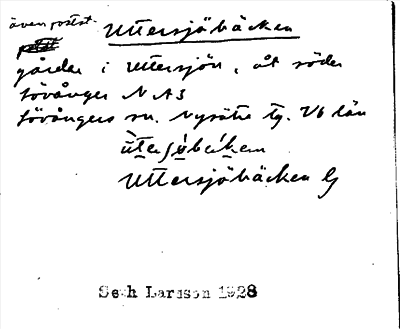 även postst.
Uttersjöbäcken
gårdar i Uttersjön, åt söder
Lövånger N A3
Lövångers sn. Nysätra tg. Vb län
Uttersjöbäcken G
Seth Larsson 1928